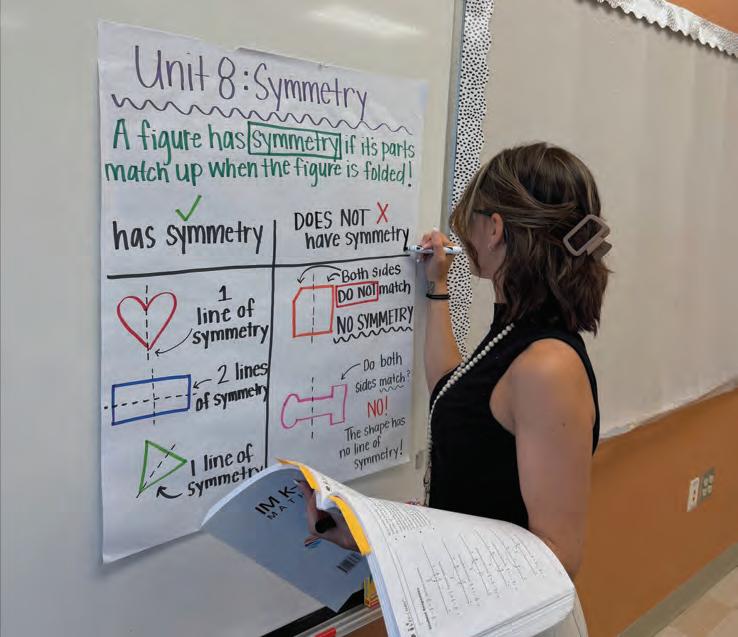 Unit 8: Symmetry
A figure has symmetry if its parts
match up when the figure is folded!
has symmetry
DOES NOT
have symmetry
1
line of
symmetry
2 lines
of symmetry
1 line of
symmetry
Both sides
DO NOT match
NO SYMMETRY
Do both
sides match?
NO!
The shape has
no line of
symmetry!
IM K-
MATH